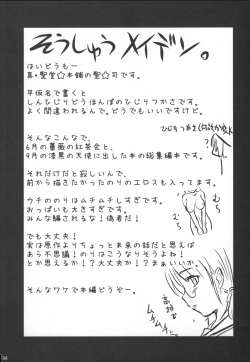 そうしゅうメイデン。
はいどうもー
真・聖堂☆本舗の聖☆司です。
平仮名で書くと
しんひじりどうほんぽのひじりつかさです。
よく間違われるんで。どうでもいいですけど。
ひじりつかさ
そんなこんなで、
6月の薔薇の紅茶会と、
9月の漆黒の天使に出した本の総集編本です。
それだけだと寂しいんで、
前から描きたかったのりのエロスも入ってます。
ウチののりはムチムチしすぎです。
おっぱいも大きすぎです。
みんな騙されるな!偽者だ!
でも大丈夫!
実は原作よりちょっと未来の話だと思えば
あら不思議!のりはこうなりそうよね!
とか思えるか!?大丈夫か!?まぁいっか!!
そんなワケで本編どうぞー。
む〜
む〜
ムチムチ
04